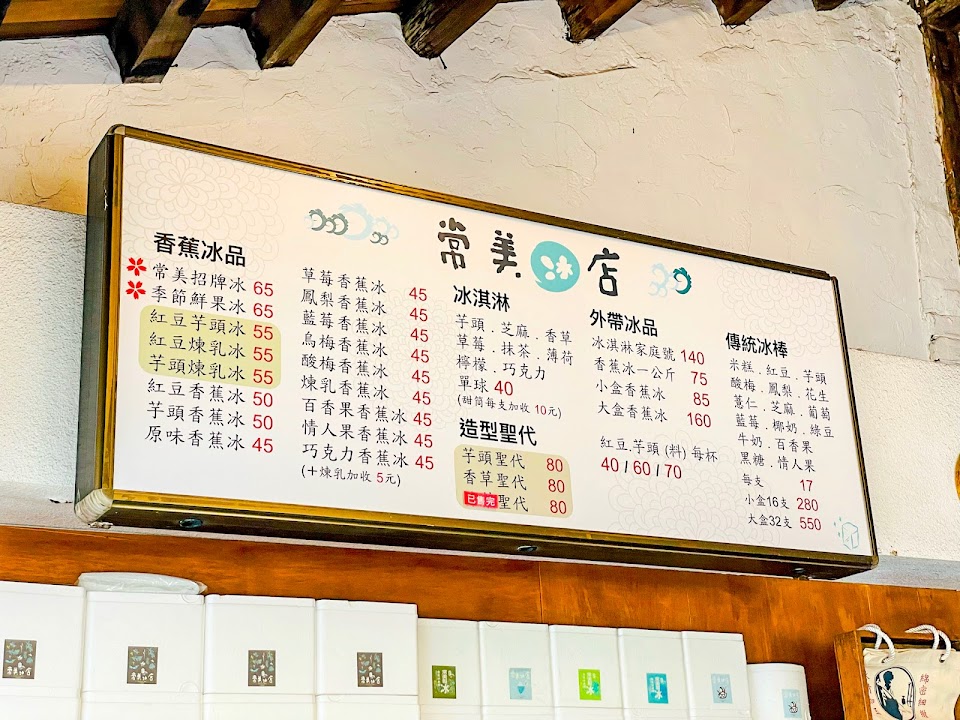 常美冰店
香蕉冰品
常美招牌冰 65
季節鮮果冰 65
紅豆芋頭冰 55
紅豆煉乳冰 55
芋頭煉乳冰 55
紅豆香蕉冰 50
芋頭香蕉冰 50
原味香蕉冰 45
草莓香蕉冰 45
鳳梨香蕉冰 45
藍莓香蕉冰 45
烏梅香蕉冰 45
酸梅香蕉冰 45
煉乳香蕉冰 45
百香果香蕉冰 45
情人果香蕉冰 45
巧克力香蕉冰 45
(+煉乳加收 5元)
冰淇淋
芋頭.芝麻.香草
草莓.抹茶.薄荷
檸檬.巧克力
單球 40
(甜筒每支加收 10元)
造型聖代
芋頭聖代 80
香草聖代 80
已售完 聖代 80
外帶冰品
冰淇淋家庭號 140
香蕉冰一公斤 75
小盒香蕉冰 85
大盒香蕉冰 160
紅豆.芋頭 (料) 每杯
40 / 60 / 70
傳統冰棒
米糕.紅豆.芋頭
酸梅.鳳梨.花生
薏仁.芝麻.葡萄
藍莓.椰奶.綠豆
牛奶.百香果
黑糖.情人果
每支 17
小盒16支 280
大盒32支 550